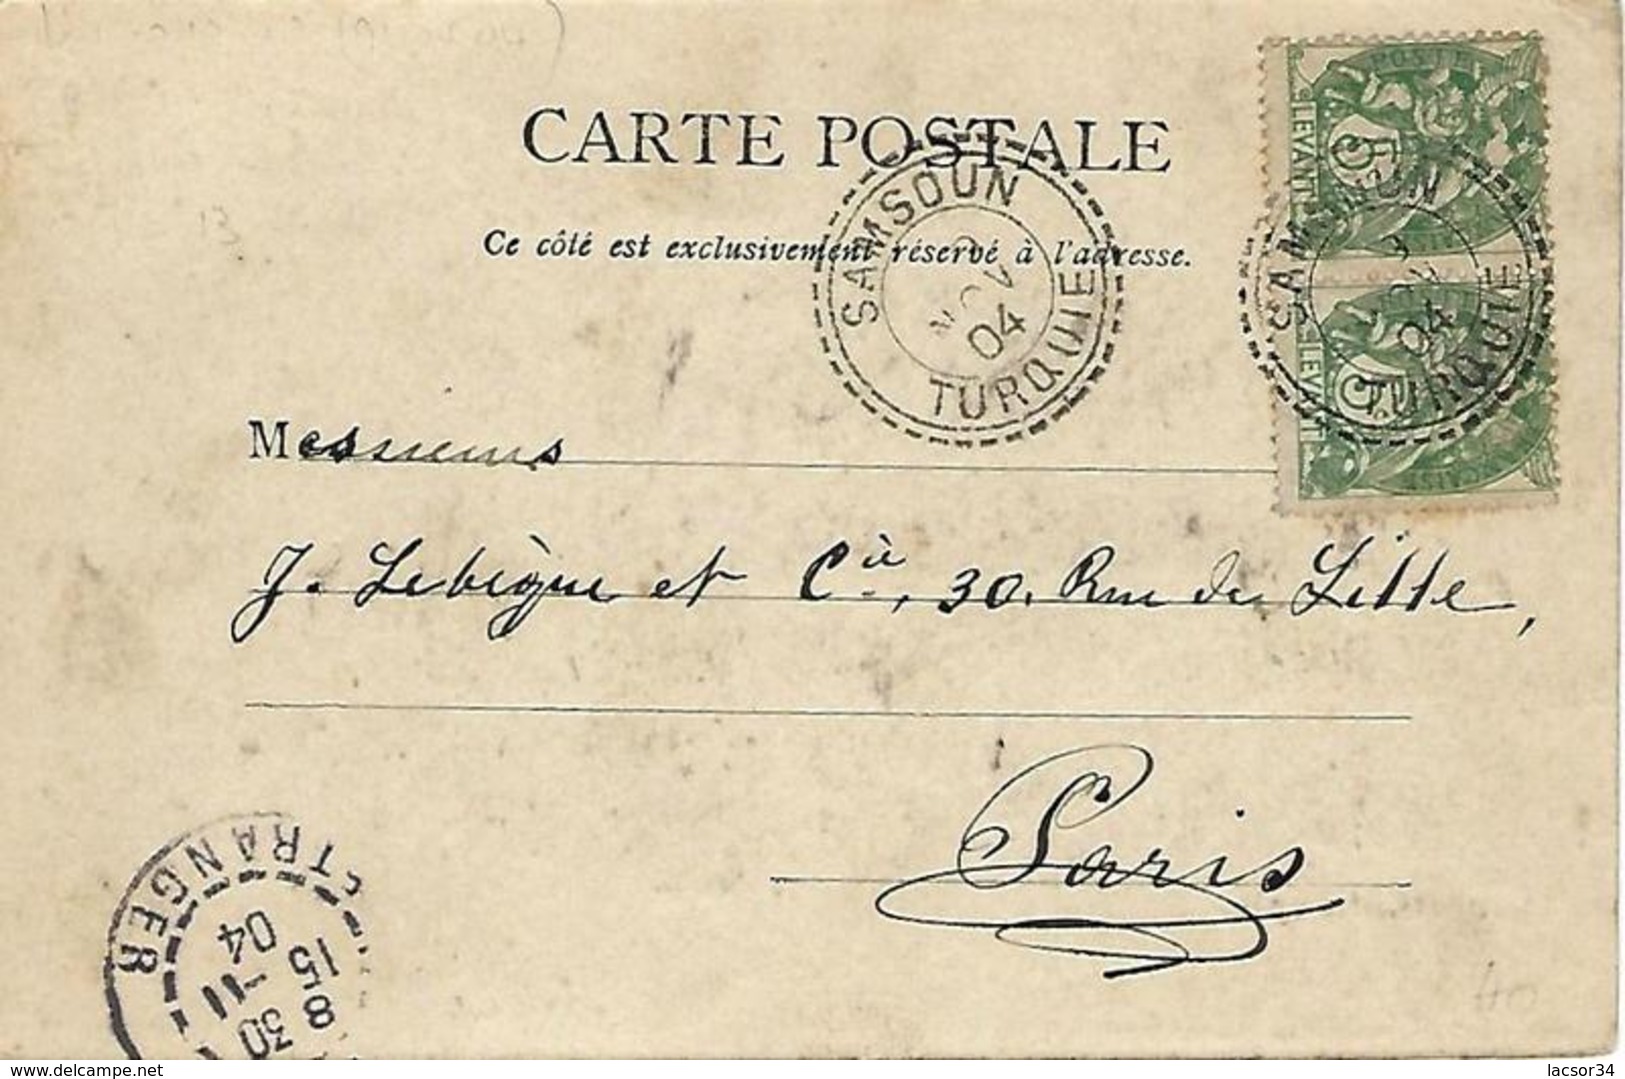 CARTE POSTALE
Ce côté est exclusivement réservé à l'adresse.
SAMSOUN
NOV
04
TURQUIE
LEVANT
5
POSTES
SAMSOUN
3
04
TURQUIE
LEVANT
5
Messieurs
J. Lebègue et Cie, 30. Rue de Lille,
Paris
ETRANGER
8 30
15 -11
04
40
delcampe.net
lacsor34